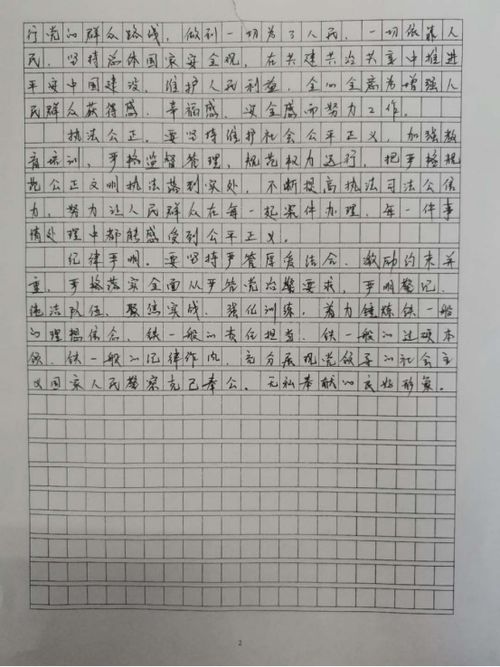 行党的群众路线，做到一切为了人民，一切依靠人
民，坚持总体国家安全观，在共建共治共享中推进
平安中国建设，维护人民利益，全心全意为增强人
民群众获得感、幸福感、安全感而努力工作。
执法公正。要坚持维护社会公平正义，加强教
育培训，严格监督管理，规范权力运行，把严格规
范公正文明执法落到实处，不断提高执法司法公信
力，努力让人民群众在每一起案件办理、每一件事
情处理中都能感受到公平正义。
纪律严明。要坚持严管厚爱结合、激励约束并
重，严格落实全面从严管党治警要求，严明警纪，
纯洁队伍，聚焦实战，强化训练，着力锤炼铁一般
的理想信念、铁一般的责任担当、铁一般的过硬本
领、铁一般的纪律作风，充分展现党领导的社会主
义国家人民警察克己奉公、无私奉献的良好形象。
2